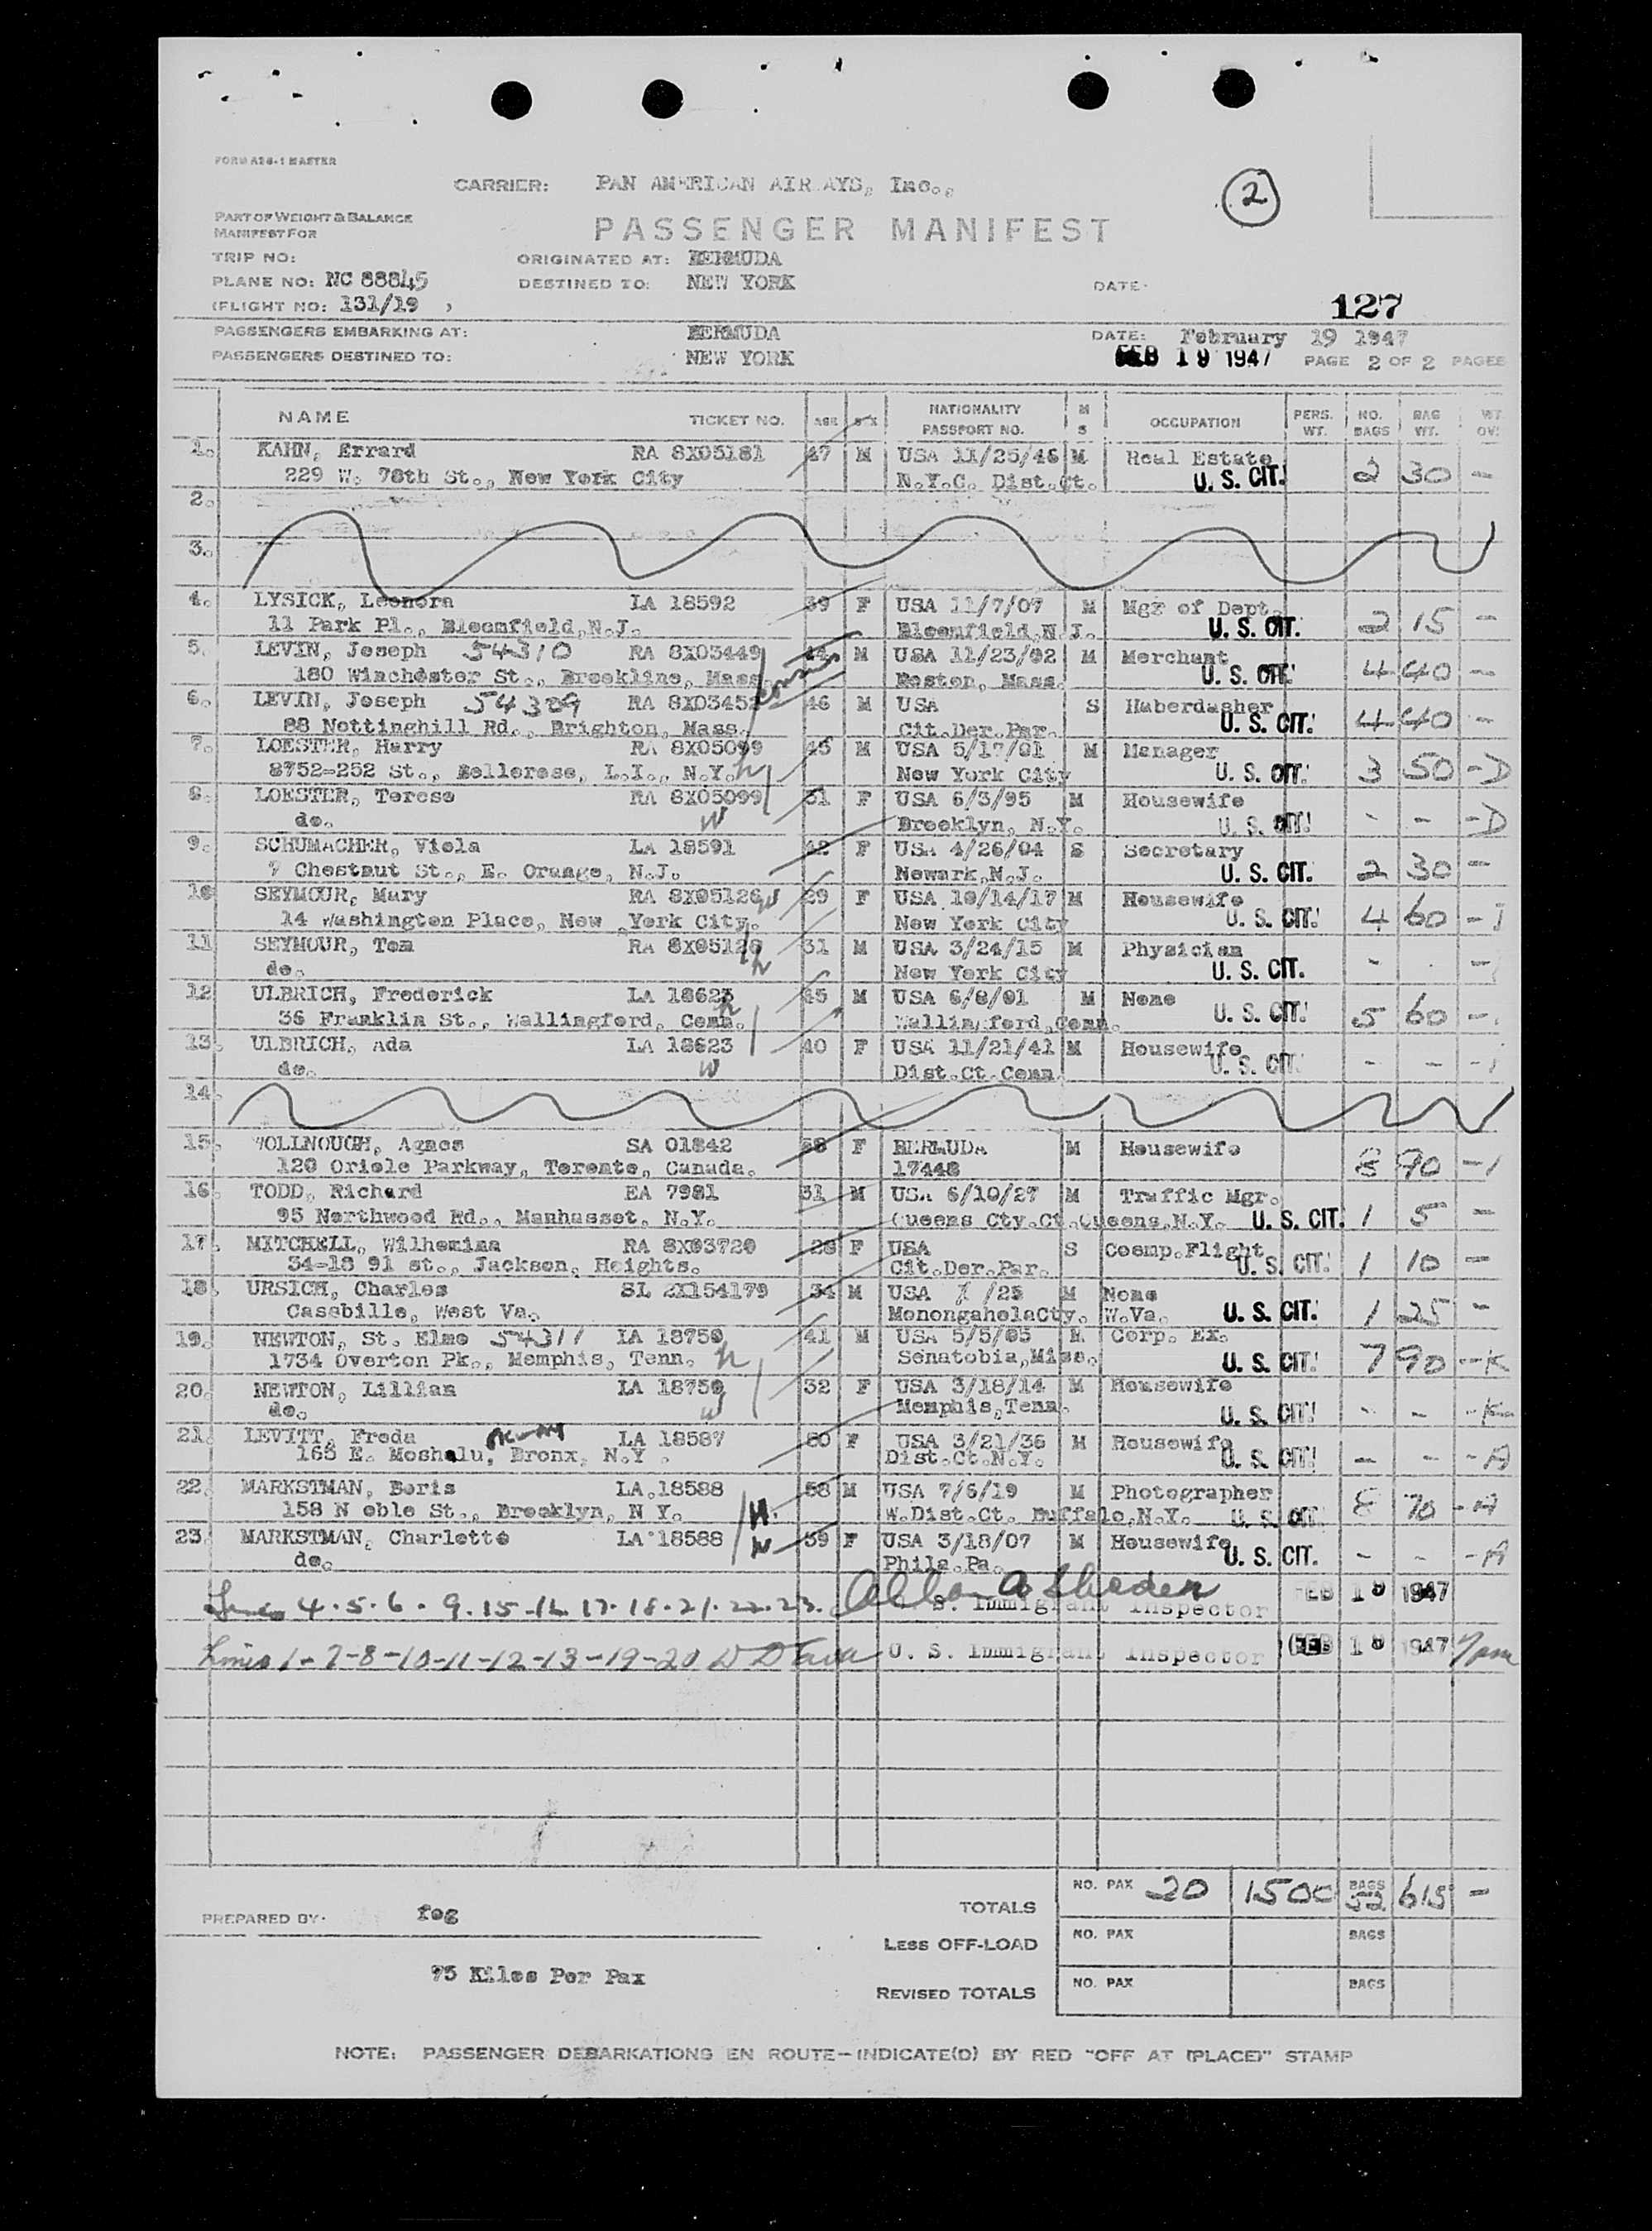 FORM A26-1 MASTER
CARRIER: PAN AMERICAN AIR AYS, Inc.,
2
PART OF WEIGHT & BALANCE
MANIFEST FOR
PASSENGER MANIFEST
TRIP NO: ORIGINATED AT: BERMUDA
PLANE NO: NC 88845 DESTINED TO: NEW YORK DATE:
(FLIGHT NO: 131/19 ) 127
PASSENGERS EMBARKING AT: BERMUDA DATE: February 19 1947
PASSENGERS DESTINED TO: NEW YORK FEB 19 1947 PAGE 2 OF 2 PAGES
NAME TICKET NO. AGE SEX NATIONALITY PASSPORT NO. M S OCCUPATION PERS. WT. NO. BAGS BAG WT. WT OV.
1. KAHN, Errard RA 8X05181 47 M USA 11/25/46 M Real Estate
229 W. 78th St., New York City N.Y.C. Dist.Ct. U. S. CIT. 2 30 -
2.
3.
4. LYSICK, Leonora LA 18592 39 F USA 11/7/07 M Mgr of Dept.
11 Park Pl., Bloomfield,N.J. Bloomfield,N.J. U. S. CIT. 2 15 -
5. LEVIN, Joseph 54310 RA 8X03449 44 M USA 11/23/02 M Merchant
180 Winchester St., Brookline, Mass. Boston, Mass. U. S. CIT. 4 40 -
6. LEVIN, Joseph 54309 RA 8X03452 46 M USA S Haberdasher
88 Nottinghill Rd., Brighton, Mass. Cit.Der.Par. U. S. CIT. 4 40 -
7. LOESTER, Harry RA 8X05099 45 M USA 5/17/01 M Manager
8752-252 St., Bellerose, L.I., N.Y. h New York City U. S. CIT. 3 50 - D
8. LOESTER, Terese RA 8X05099 51 F USA 6/3/95 M Housewife
do. w Brooklyn, N.Y. U. S. CIT. - - - D
9. SCHUMACHER, Viola LA 18591 42 F USA 4/26/04 S Secretary
7 Chestnut St., E. Orange, N.J. Newark,N.J. U. S. CIT. 2 30 -
10 SEYMOUR, Mary RA 8X05126 w 29 F USA 10/14/17 M Housewife
14 Washington Place, New York City. New York City U. S. CIT. 4 60 -
11 SEYMOUR, Tom RA 8X05126 31 M USA 3/24/15 M Physician
do. h New York City U. S. CIT. - - -
12 ULBRICH, Frederick LA 18623 45 M USA 6/8/01 M None
36 Franklin St., Wallingford, Conn. h Wallingford,Conn. U. S. CIT. 5 60 -
13. ULBRICH, Ada LA 18623 40 F USA 11/21/41 M Housewife
do. w Dist.Ct.Conn. U. S. CIT. - - -
14.
15. WOLLNOUGH, Agnes SA 01842 58 F BERMUDA M Housewife
120 Oriole Parkway, Toronto, Canada. 17448 8 90 -
16. TODD, Richard EA 7981 31 M USA 6/10/27 M Traffic Mgr.
95 Northwood Rd., Manhasset, N.Y. Queens Cty.Ct.Queens,N.Y. U. S. CIT. 1 5 -
17. MITCHELL, Wilhemina RA 8X03720 28 F USA S Coemp.Flight
34-18 91 st., Jackson, Heights. Cit.Der.Par. U. S. CIT. 1 10 -
18. URSICH, Charles SL 2X154179 34 M USA /23 M None
Cassbille, West Va. MonongahelaCty. W.Va. U. S. CIT. 1 25 -
19. NEWTON, St. Elmo 54311 LA 18750 41 M USA 5/5/05 M Corp. Ex.
1734 Overton Pk., Memphis, Tenn. h Senatobia,Miss. U. S. CIT. 7 90 - K
20. NEWTON, Lillian LA 18750 32 F USA 3/18/14 M Housewife
do. w Memphis,Tenn. U. S. CIT. - - - K
21. LEVITT, Freda LA 18587 60 F USA 3/21/36 M Housewife
165 E. Moshalu, Bronx, N.Y . Dist.Ct.N.Y. U. S. CIT. - - - A
22. MARKSTMAN, Boris LA.18588 58 M USA 7/6/19 M Photographer
158 N oble St., Brooklyn, N Y. H. W.Dist.Ct. Buffalo,N.Y. U. S. CIT. 8 70 - A
23. MARKSTMAN, Charlotte LA 18588 39 F USA 3/18/07 M Housewife
do. w Phila.Pa. U. S. CIT. - - - A
Lines 4.5.6.9.15.16.17.18.21.22.23. S. Immigrant Inspector FEB 19 1947
Lines 1-7-8-10-11-12-13-19-20 U. S. Immigrant Inspector FEB 19 1947 7pm
TOTALS NO. PAX 20 1500 BAGS 52 615 -
PREPARED BY. fog
LESS OFF-LOAD NO. PAX BAGS
75 Kilos Per Pax
REVISED TOTALS NO. PAX BAGS
NOTE: PASSENGER DEBARKATIONS EN ROUTE-INDICATE(D) BY RED "OFF AT (PLACE)" STAMP